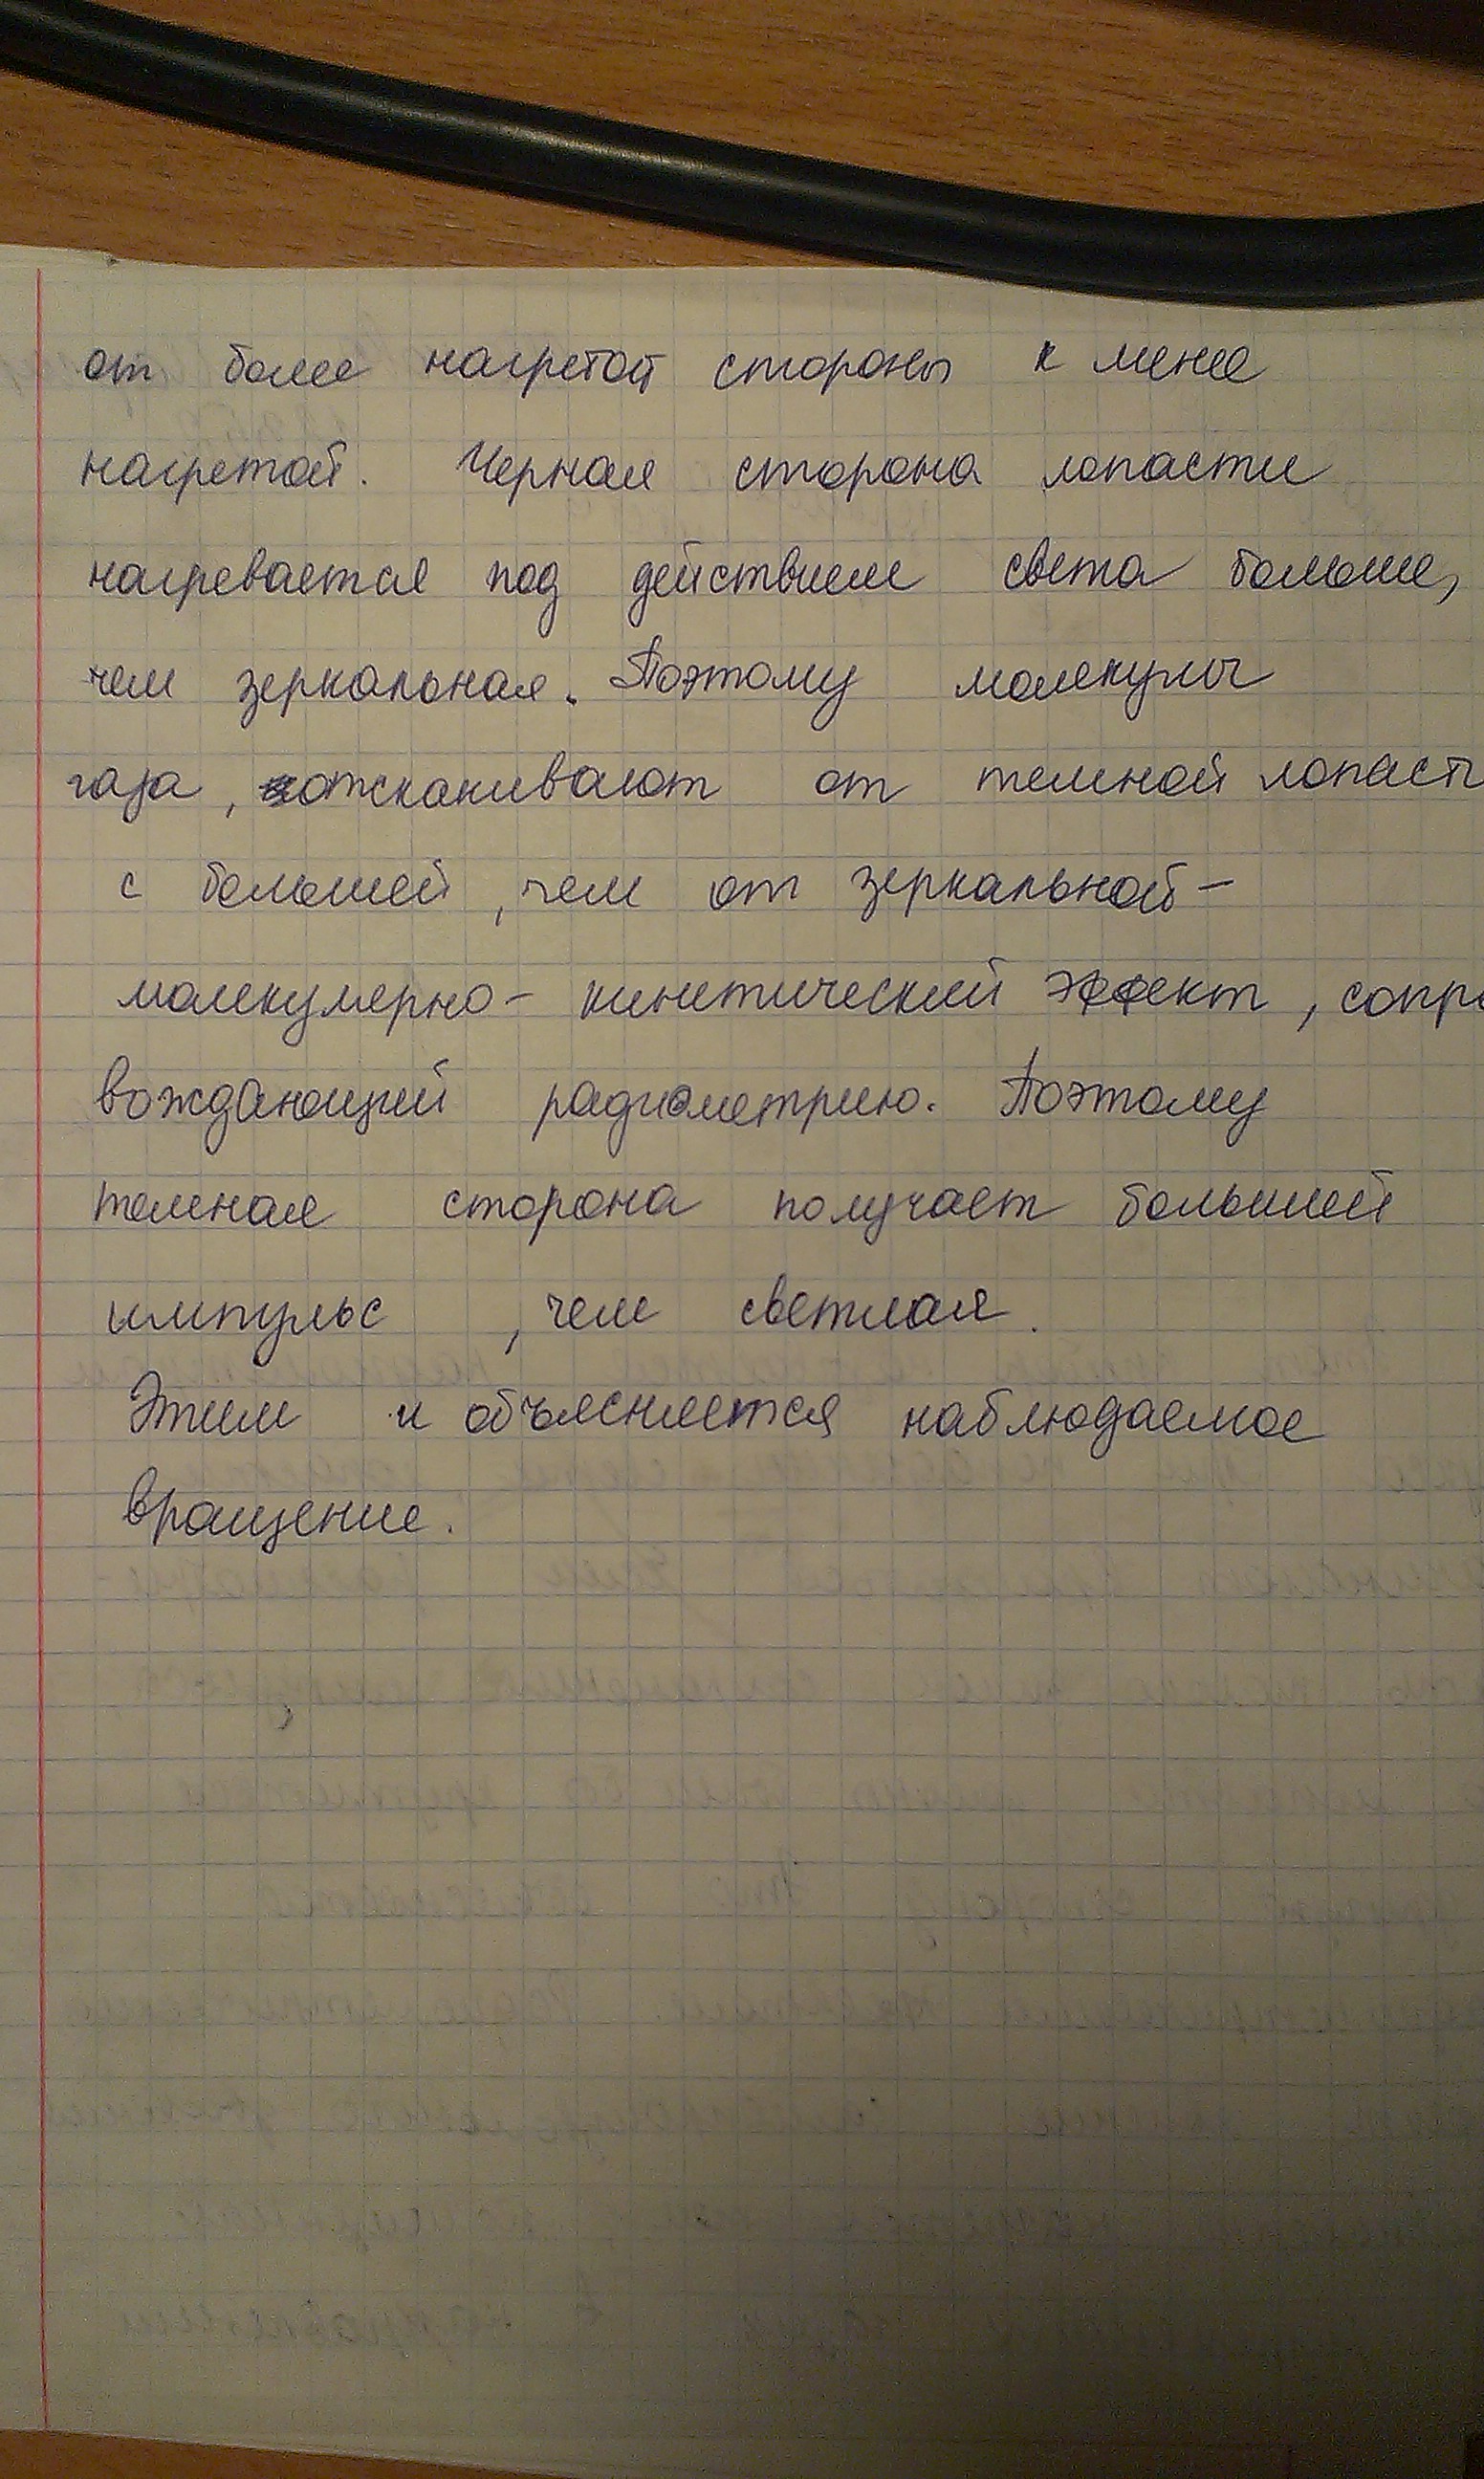 от более нагретой стороны к менее
нагретой. Черная сторона лопасти
нагревается под действием света больше,
чем зеркальная. Поэтому молекулы
газа, отскакивают от темной лопасти
с большей, чем от зеркальной -
молекулярно - кинетический эффект, сопро
вождающий радиометрию. Поэтому
темная сторона получает больший
импульс , чем светлая.
Этим и объясняется наблюдаемое
вращение.